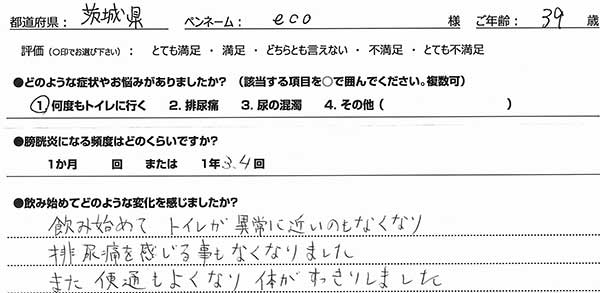 都道府県: 茨城県 ペンネーム: eco 様 ご年齢: 39 歳
評価(○印でお選び下さい): とても満足 ・ 満足 ・ どちらとも言えない ・ 不満足 ・ とても不満足
●どのような症状やお悩みがありましたか? (該当する項目を○で囲んでください。複数可)
1. 何度もトイレに行く 2. 排尿痛 3. 尿の混濁 4. その他 ( )
●膀胱炎になる頻度はどのくらいですか?
1か月 回 または 1年 3.4 回
●飲み始めてどのような変化を感じましたか?
飲み始めて トイレが異常に近いのもなくなり
排尿痛を感じる事もなくなりました
また 便通もよくなり 体がすっきりしました